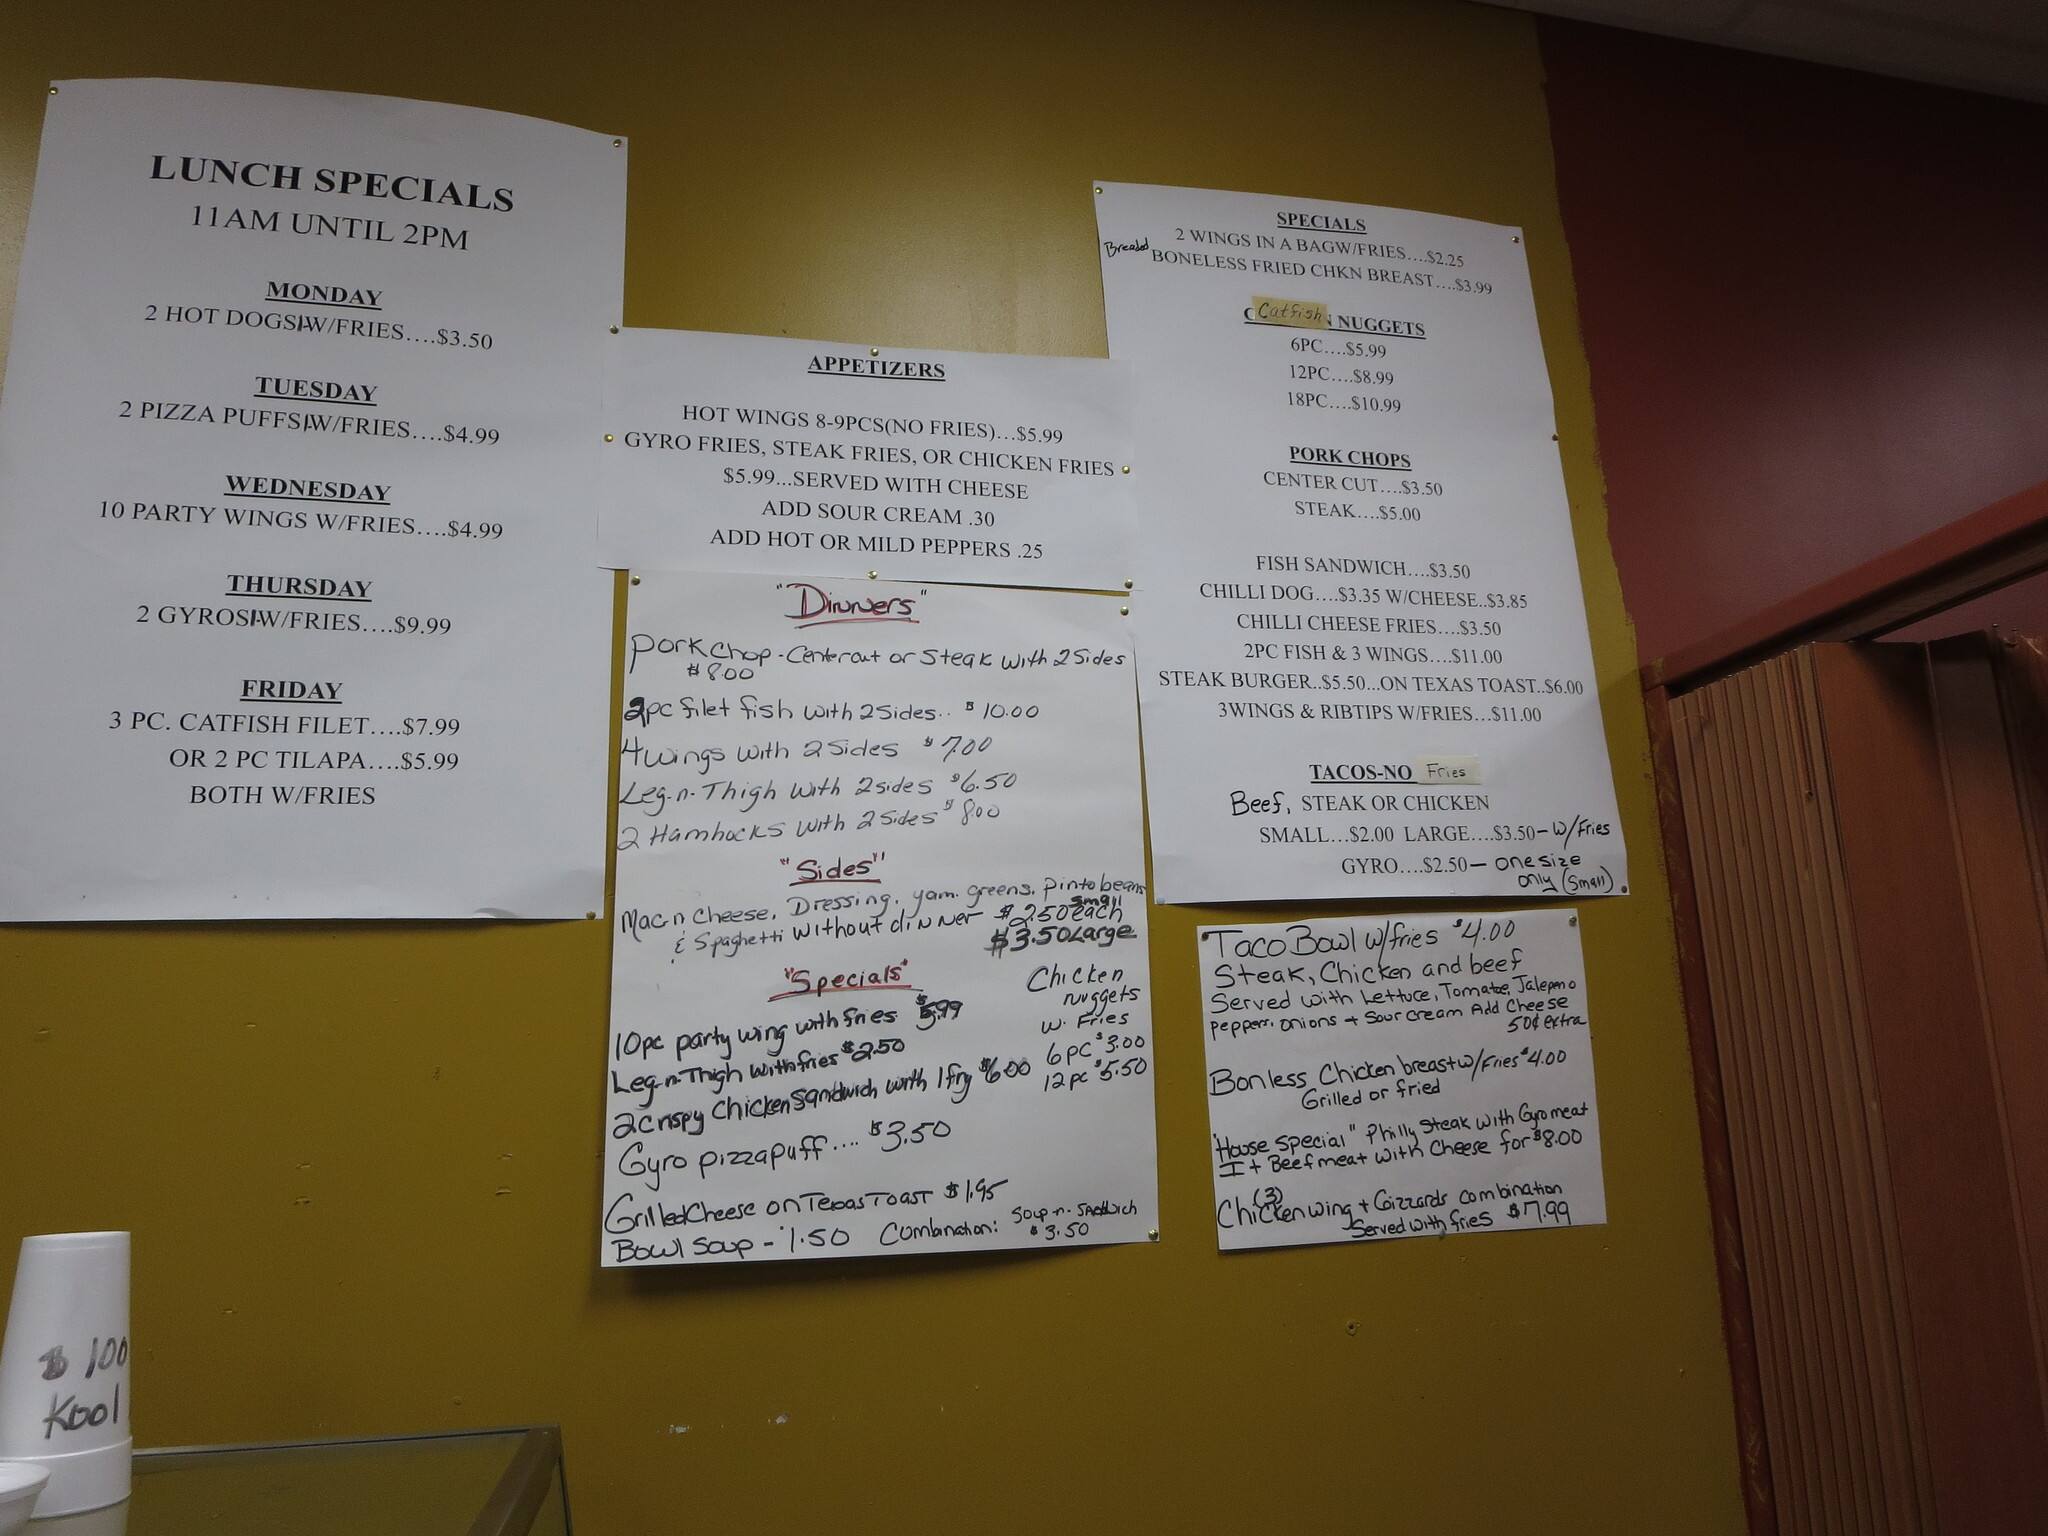 LUNCH SPECIALS
11AM UNTIL 2PM
MONDAY
2 HOT DOGS 1-W/FRIES....$3.50
TUESDAY
2 PIZZA PUFFS 1 W/FRIES....$4.99
WEDNESDAY
10 PARTY WINGS W/FRIES....$4.99
THURSDAY
2 GYROS 1-W/FRIES....$9.99
FRIDAY
3 PC. CATFISH FILET....$7.99
OR 2 PC TILAPA....$5.99
BOTH W/FRIES
APPETIZERS
HOT WINGS 8-9PCS(NO FRIES)...$5.99
GYRO FRIES, STEAK FRIES, OR CHICKEN FRIES
$5.99...SERVED WITH CHEESE
ADD SOUR CREAM .30
ADD HOT OR MILD PEPPERS .25
"Dinners"
Pork Chop - Centercut or Steak with 2 Sides
$8.00
2pc filet fish with 2 Sides.. $10.00
4 Wings with 2 Sides $7.00
Leg-n-Thigh with 2 sides $6.50
2 Hamhocks with 2 Sides $8.00
"Sides"
Mac-n Cheese, Dressing, yam. greens. Pinto beans
& Spaghetti without dinner $2.50 small each
$3.50 Large
"Specials"
10pc party wing with fries $5.99
Leg-n-Thigh with fries $2.50
2 crispy Chicken Sandwich with 1 fry $6.00
Gyro pizza puff .... $3.50
Grilled Cheese on Texas Toast $1.95
Bowl Soup - 1.50 Combination: Soup-n-Sandwich
$3.50
Chicken
nuggets
w. Fries
6 pc $3.00
12 pc $5.50
SPECIALS
2 WINGS IN A BAGW/FRIES....$2.25
Breaded BONELESS FRIED CHKN BREAST....$3.99
Catfish NUGGETS
6PC....$5.99
12PC....$8.99
18PC....$10.99
PORK CHOPS
CENTER CUT....$3.50
STEAK....$5.00
FISH SANDWICH....$3.50
CHILLI DOG....$3.35 W/CHEESE..$3.85
CHILLI CHEESE FRIES....$3.50
2PC FISH & 3 WINGS....$11.00
STEAK BURGER..$5.50...ON TEXAS TOAST..$6.00
3WINGS & RIBTIPS W/FRIES...$11.00
TACOS-NO Fries
Beef, STEAK OR CHICKEN
SMALL...$2.00 LARGE....$3.50 - w/Fries
GYRO....$2.50 - one size
only (Small)
Taco Bowl w/fries $4.00
Steak, Chicken and beef
Served with Lettuce, Tomatoe, Jalepeno
peppers. onions + Sour cream Add Cheese
50¢ extra
Bonless Chicken breast w/Fries $4.00
Grilled or fried
"House Special" Philly Steak with Gyro meat
It Beef meat with Cheese for $8.00
(3)
Chicken wing + Gizzards combination
Served with fries $7.99
$ 100
Kool